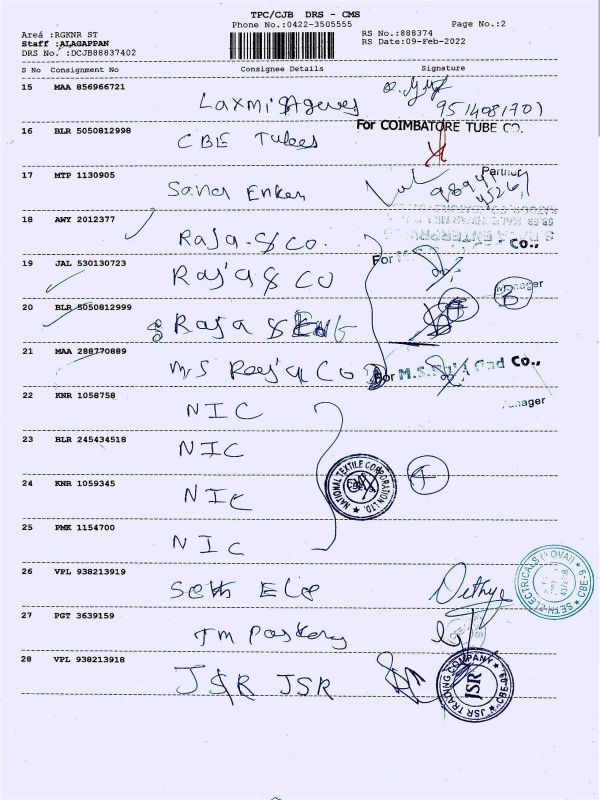 TPC/CJB DRS - CMS
Phone No.:0422-3505555
Page No.:2
Area :RGKNR ST
Staff :ALAGAPPAN
DRS No. :DCJB88837402
RS No.:888374
RS Date:09-Feb-2022
S No Consignment No Consignee Details Signature
15 MAA 856966721
Laxmi
9514081701
16 BLR 5050812998
CBE Tubes
For COIMBATORE TUBE CO.
Partner
17 MTP 1130905
18 AWY 2012377
Raja & Co.
For M.S. Co.,
19 JAL 530130723
Raja & CO
Manager
B
20 BLR 5050812999
Raja &
21 MAA 288770889
M/S Raja & CO
For M.S. Raja And Co.,
Manager
22 KNR 1058758
NIC
23 BLR 245434518
NIC
24 KNR 1059345
NIC
NATIONAL TEXTILE CORPORATION LTD.
25 PMK 1154700
NIC
26 VPL 938213919
Seth Ele
SETH ELECTRICALS (KOVAI) CBE-9
27 PGT 3639159
TM
28 VPL 938213918
J&R JSR
JSR TRADING COMPANY
JSR